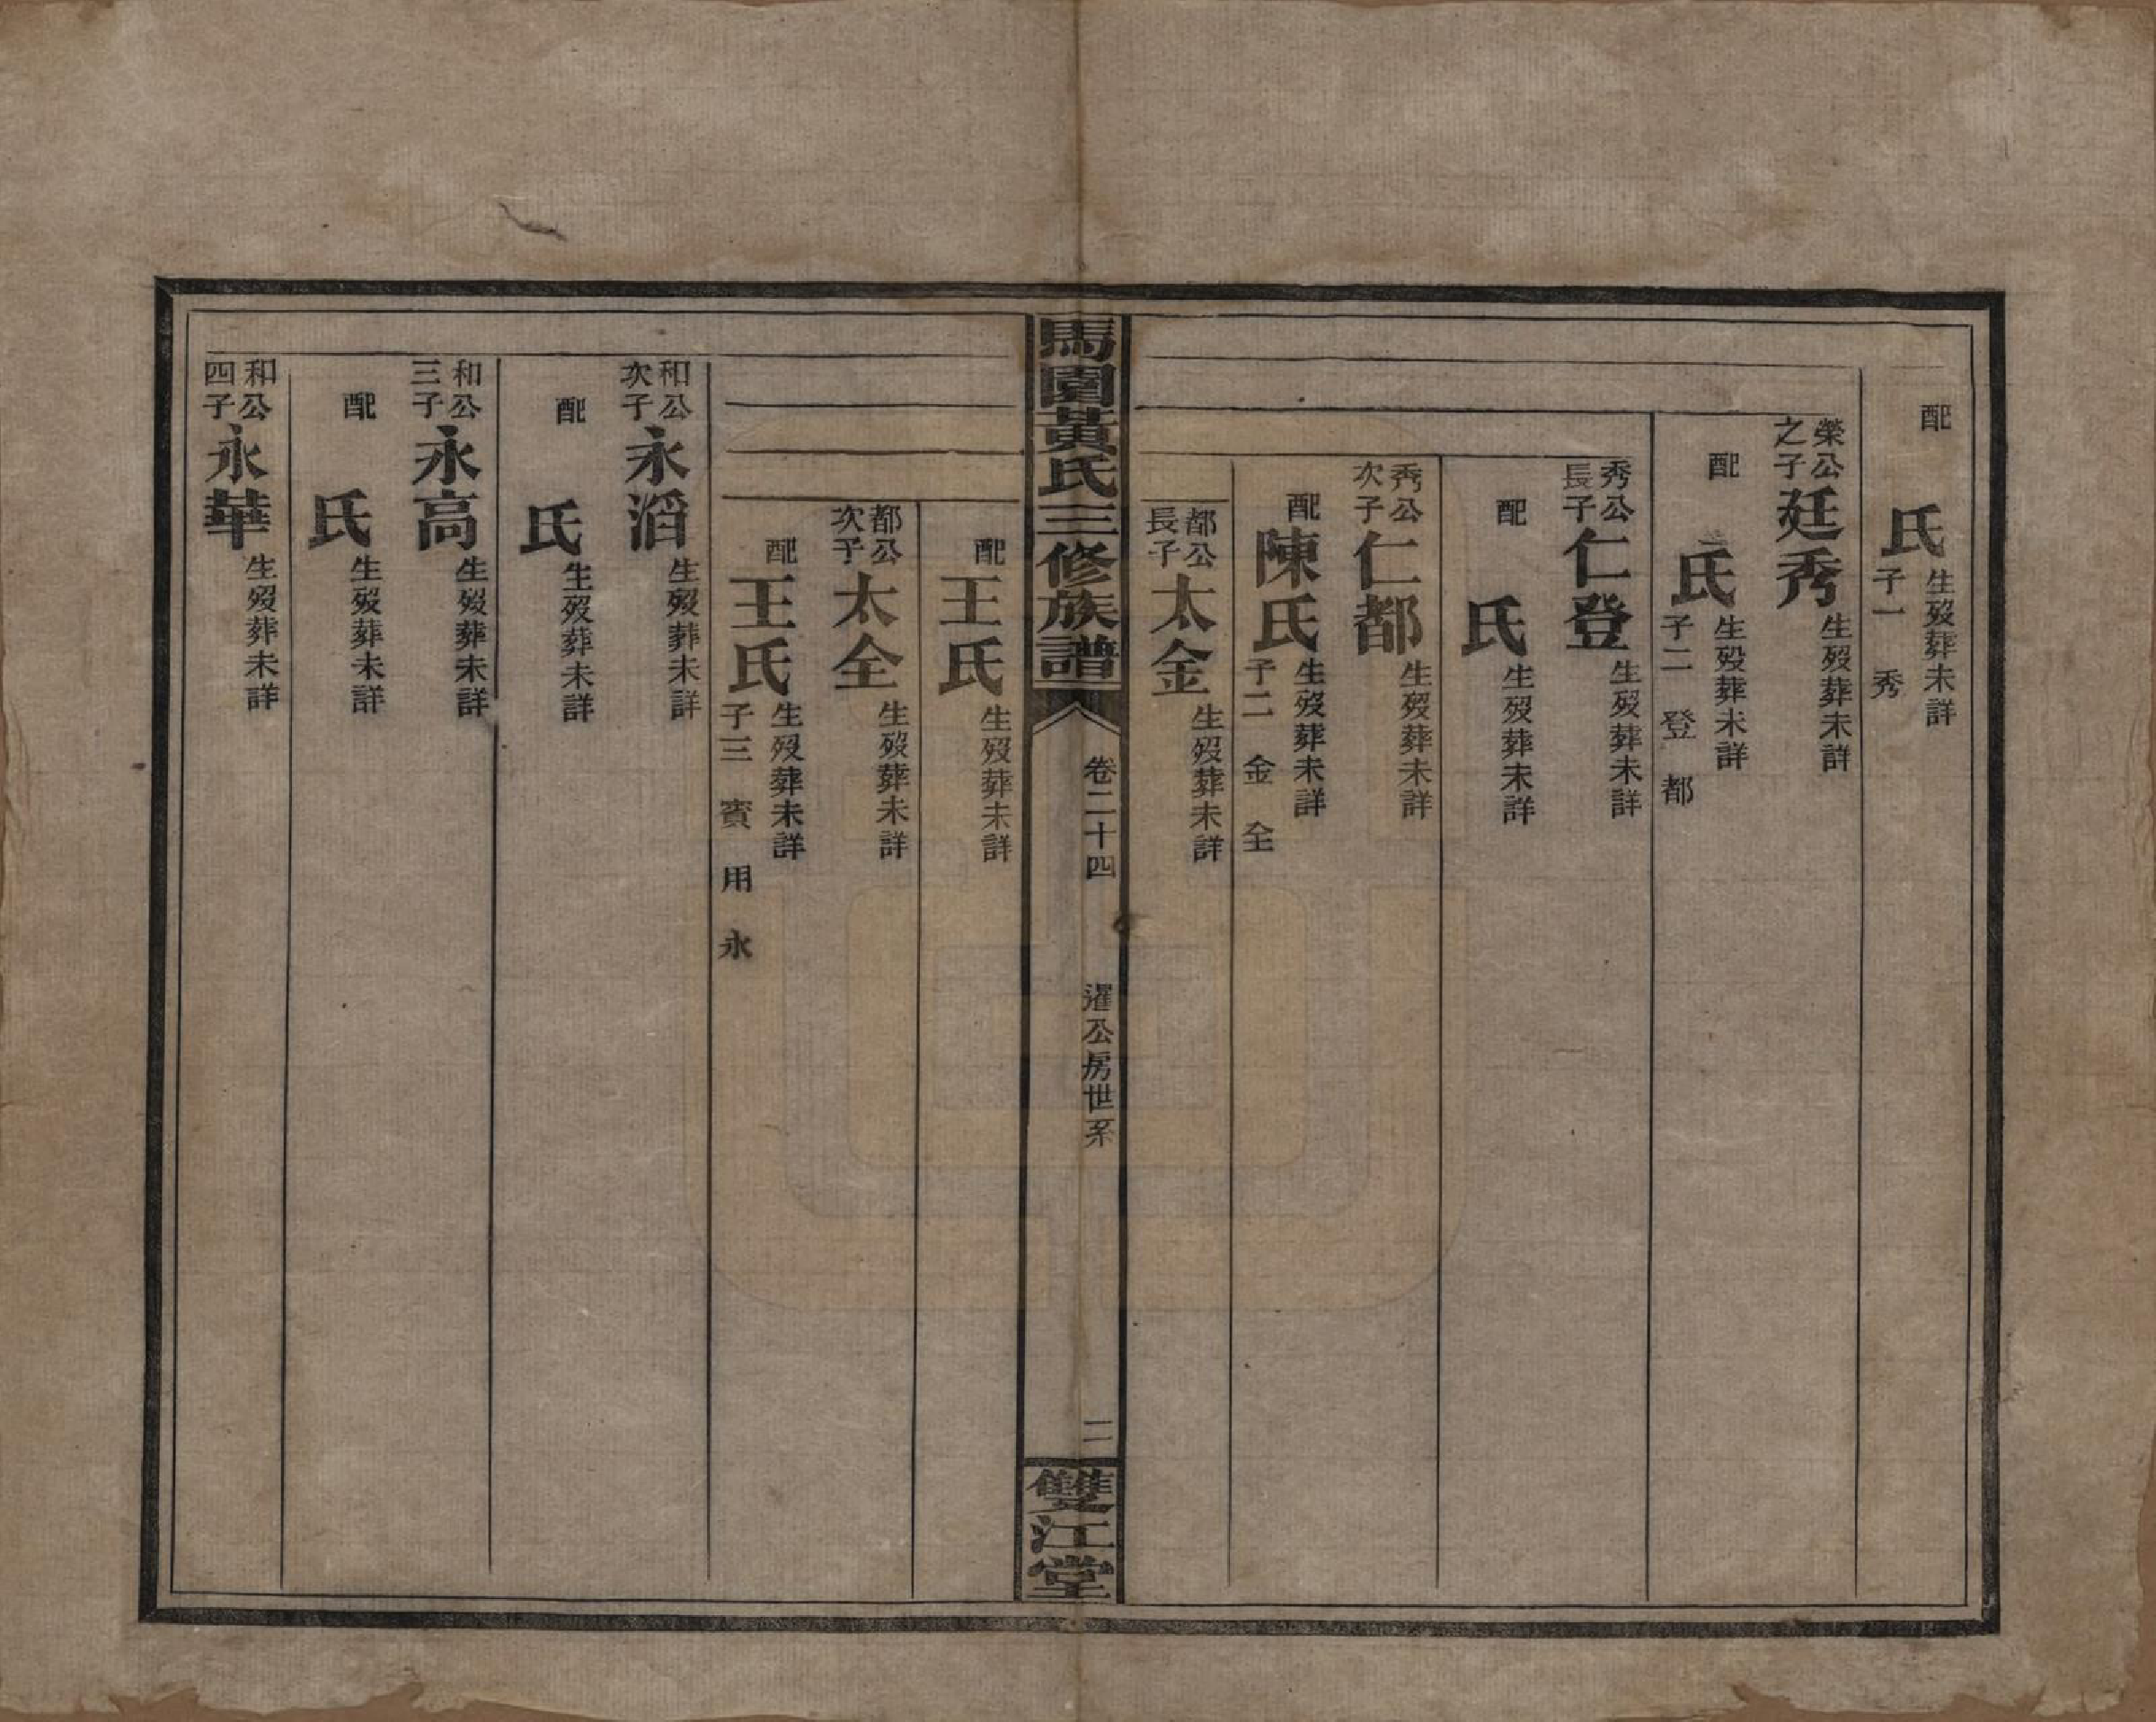 配　氏　生歿葬未詳
子一　秀
榮公之子　廷秀　生歿葬未詳
配　氏　生歿葬未詳
子二　登　都
秀公長子　仁登　生歿葬未詳
配　氏　生歿葬未詳
秀公次子　仁都　生歿葬未詳
配　陳氏　生歿葬未詳
子二　金　全
都公長子　太金　生歿葬未詳
馬園黃氏三修族譜　卷二十四　公房世系　二　雙江堂
配　王氏　生歿葬未詳
都公次子　太全　生歿葬未詳
配　王氏　生歿葬未詳
子三　賓　用　永
和公次子　永滔　生歿葬未詳
配　氏　生歿葬未詳
和公三子　永高　生歿葬未詳
配　氏　生歿葬未詳
和公四子　永華　生歿葬未詳